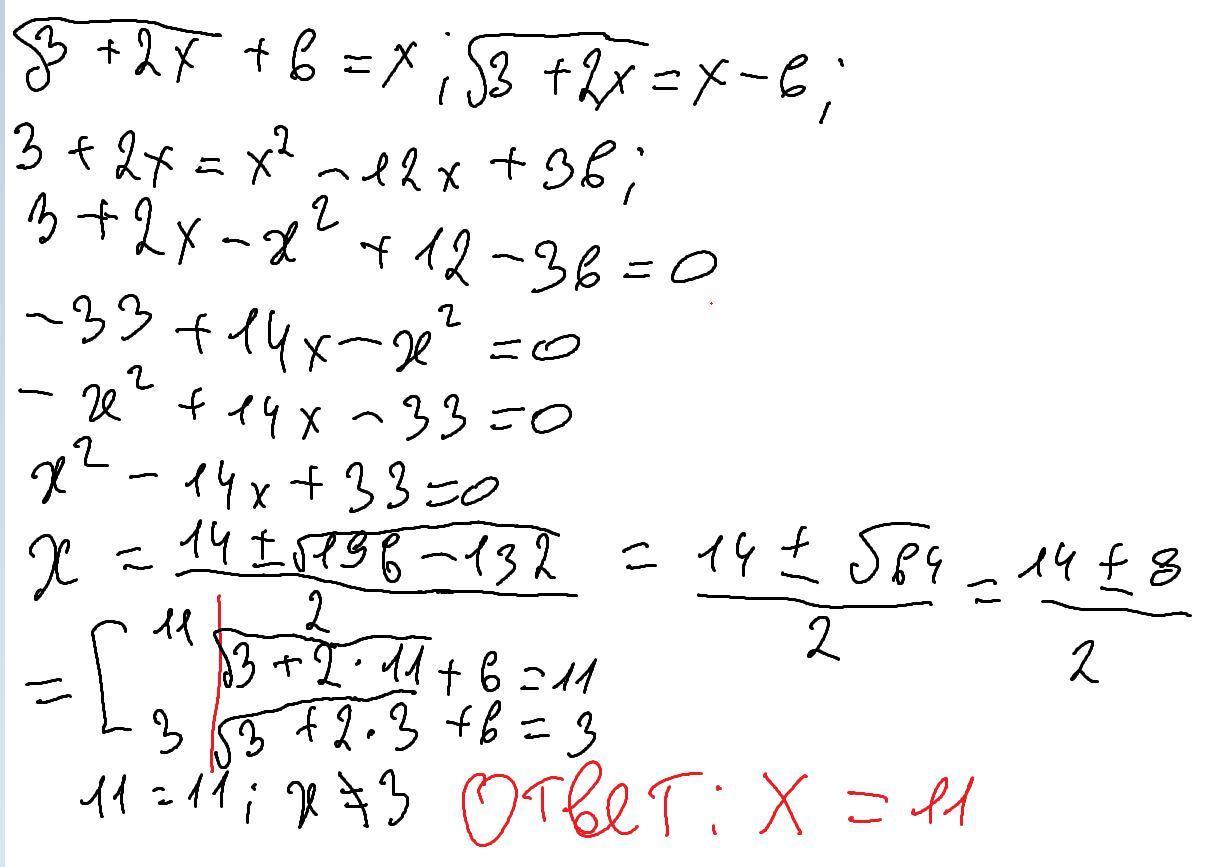 √(3 + 2x) + 6 = x; √(3 + 2x) = x - 6;
3 + 2x = x² - 12x + 36;
3 + 2x - x² + 12 - 36 = 0
-33 + 14x - x² = 0
- x² + 14x - 33 = 0
x² - 14x + 33 = 0
x = (14 ± √(196 - 132))/2 = (14 ± √64)/2 = (14 ± 8)/2
= [ 11 | √(3 + 2·11) + 6 = 11
3 | √(3 + 2·3) + 6 = 3
11 = 11; x ≠ 3 Ответ: x = 11